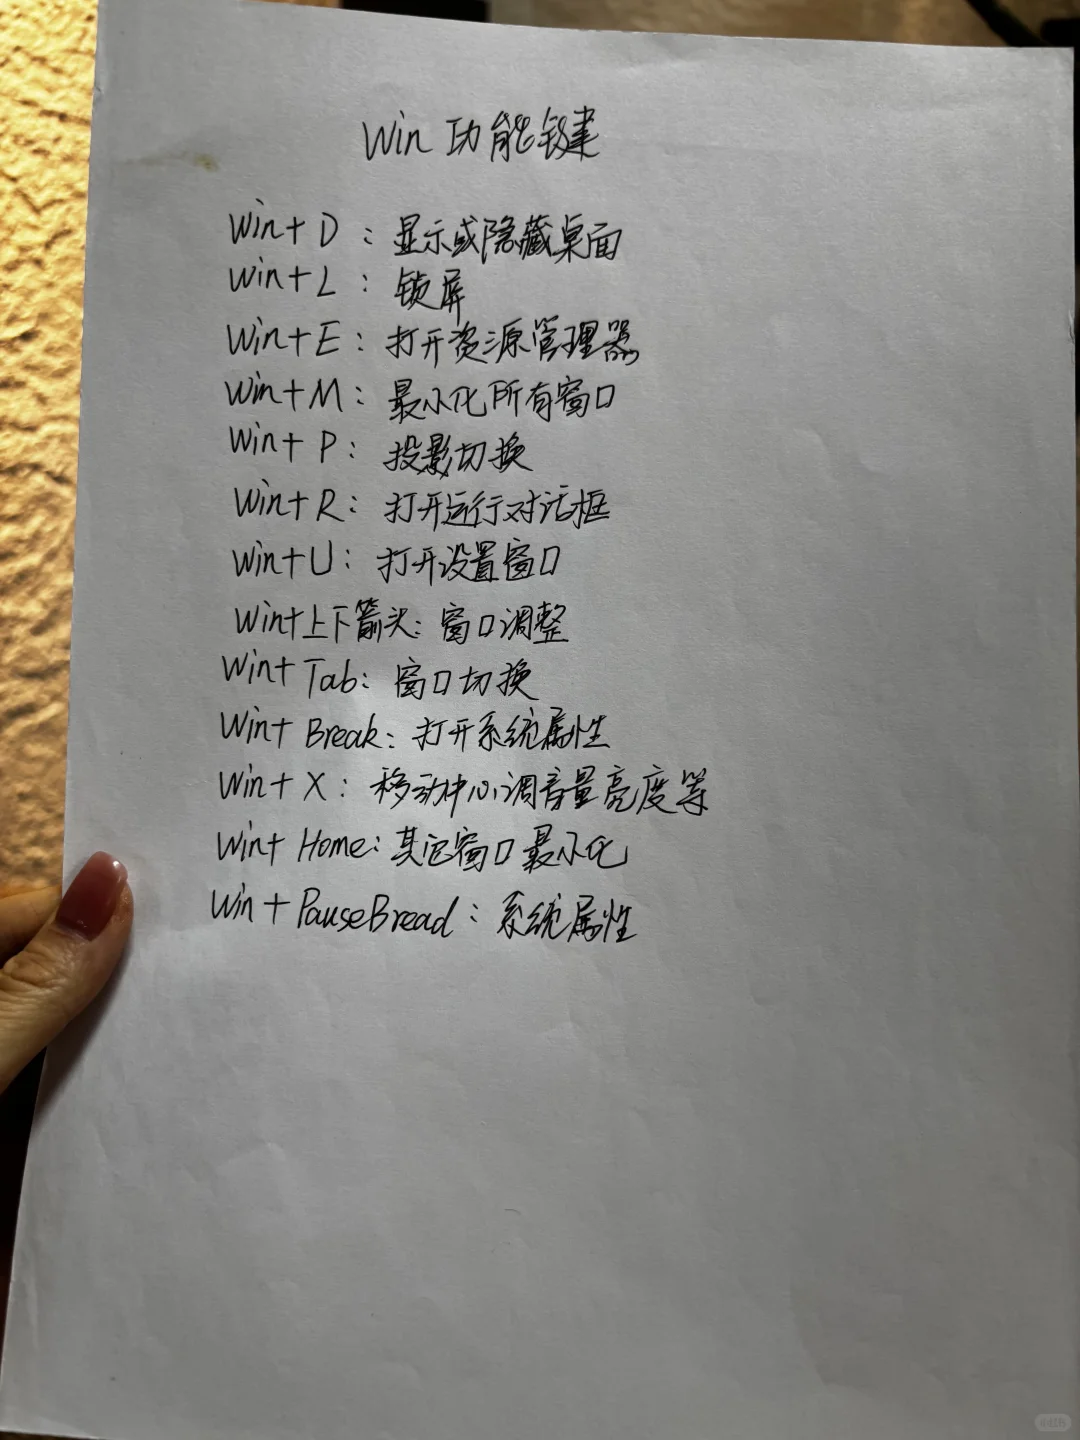 Win 功能键
Win+ D : 显示或隐藏桌面
Win+ L : 锁屏
Win+E : 打开资源管理器
Win+M : 最小化所有窗口
Win+ P : 投影切换
Win+ R : 打开运行对话框
Win+U : 打开设置窗口
Win+上下箭头: 窗口调整
Win+ Tab: 窗口切换
Win+ Break: 打开系统属性
Win+ X : 移动中心,调音量亮度等
Win+ Home: 其它窗口最小化
Win+PauseBread : 系统属性